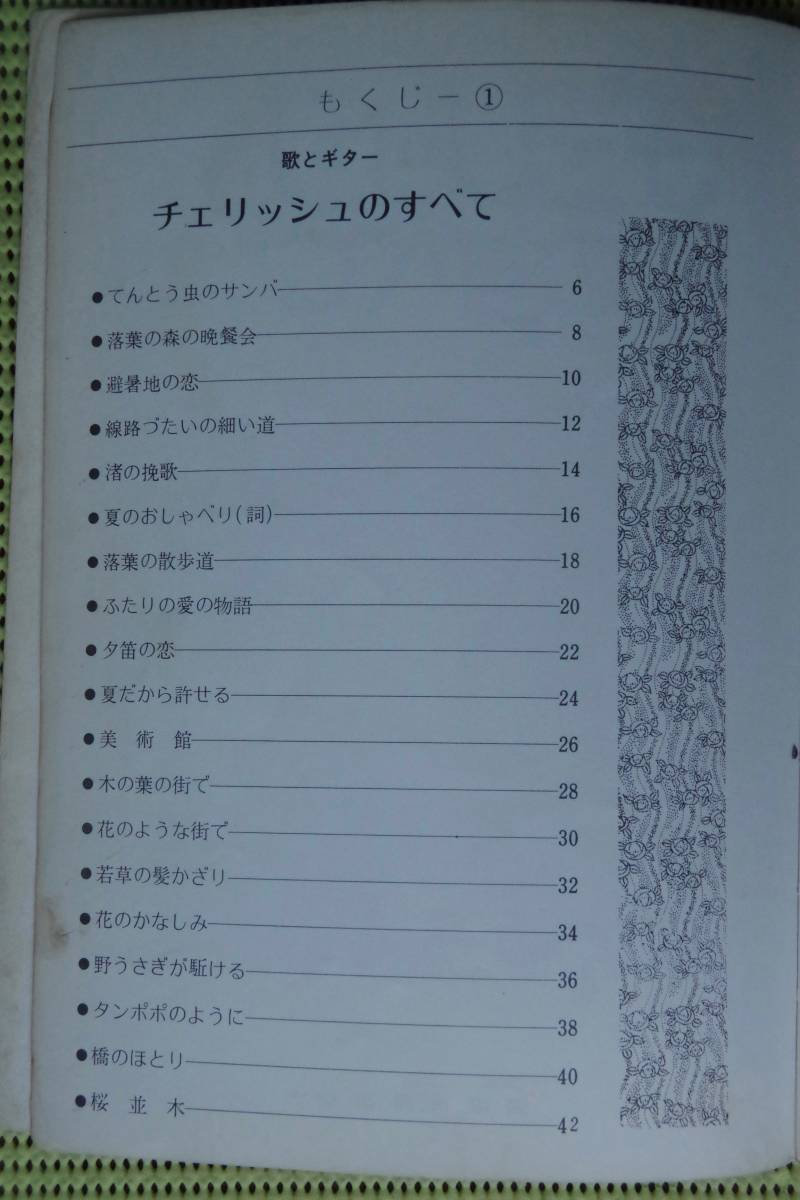 もくじ－①
歌とギター
チェリッシュのすべて
●てんとう虫のサンバ――6
●落葉の森の晩餐会――8
●避暑地の恋――10
●線路づたいの細い道――12
●渚の挽歌――14
●夏のおしゃべり(詞)――16
●落葉の散歩道――18
●ふたりの愛の物語――20
●夕笛の恋――22
●夏だから許せる――24
●美術館――26
●木の葉の街で――28
●花のような街で――30
●若草の髪かざり――32
●花のかなしみ――34
●野うさぎが駈ける――36
●タンポポのように――38
●橋のほとり――40
●桜並木――42